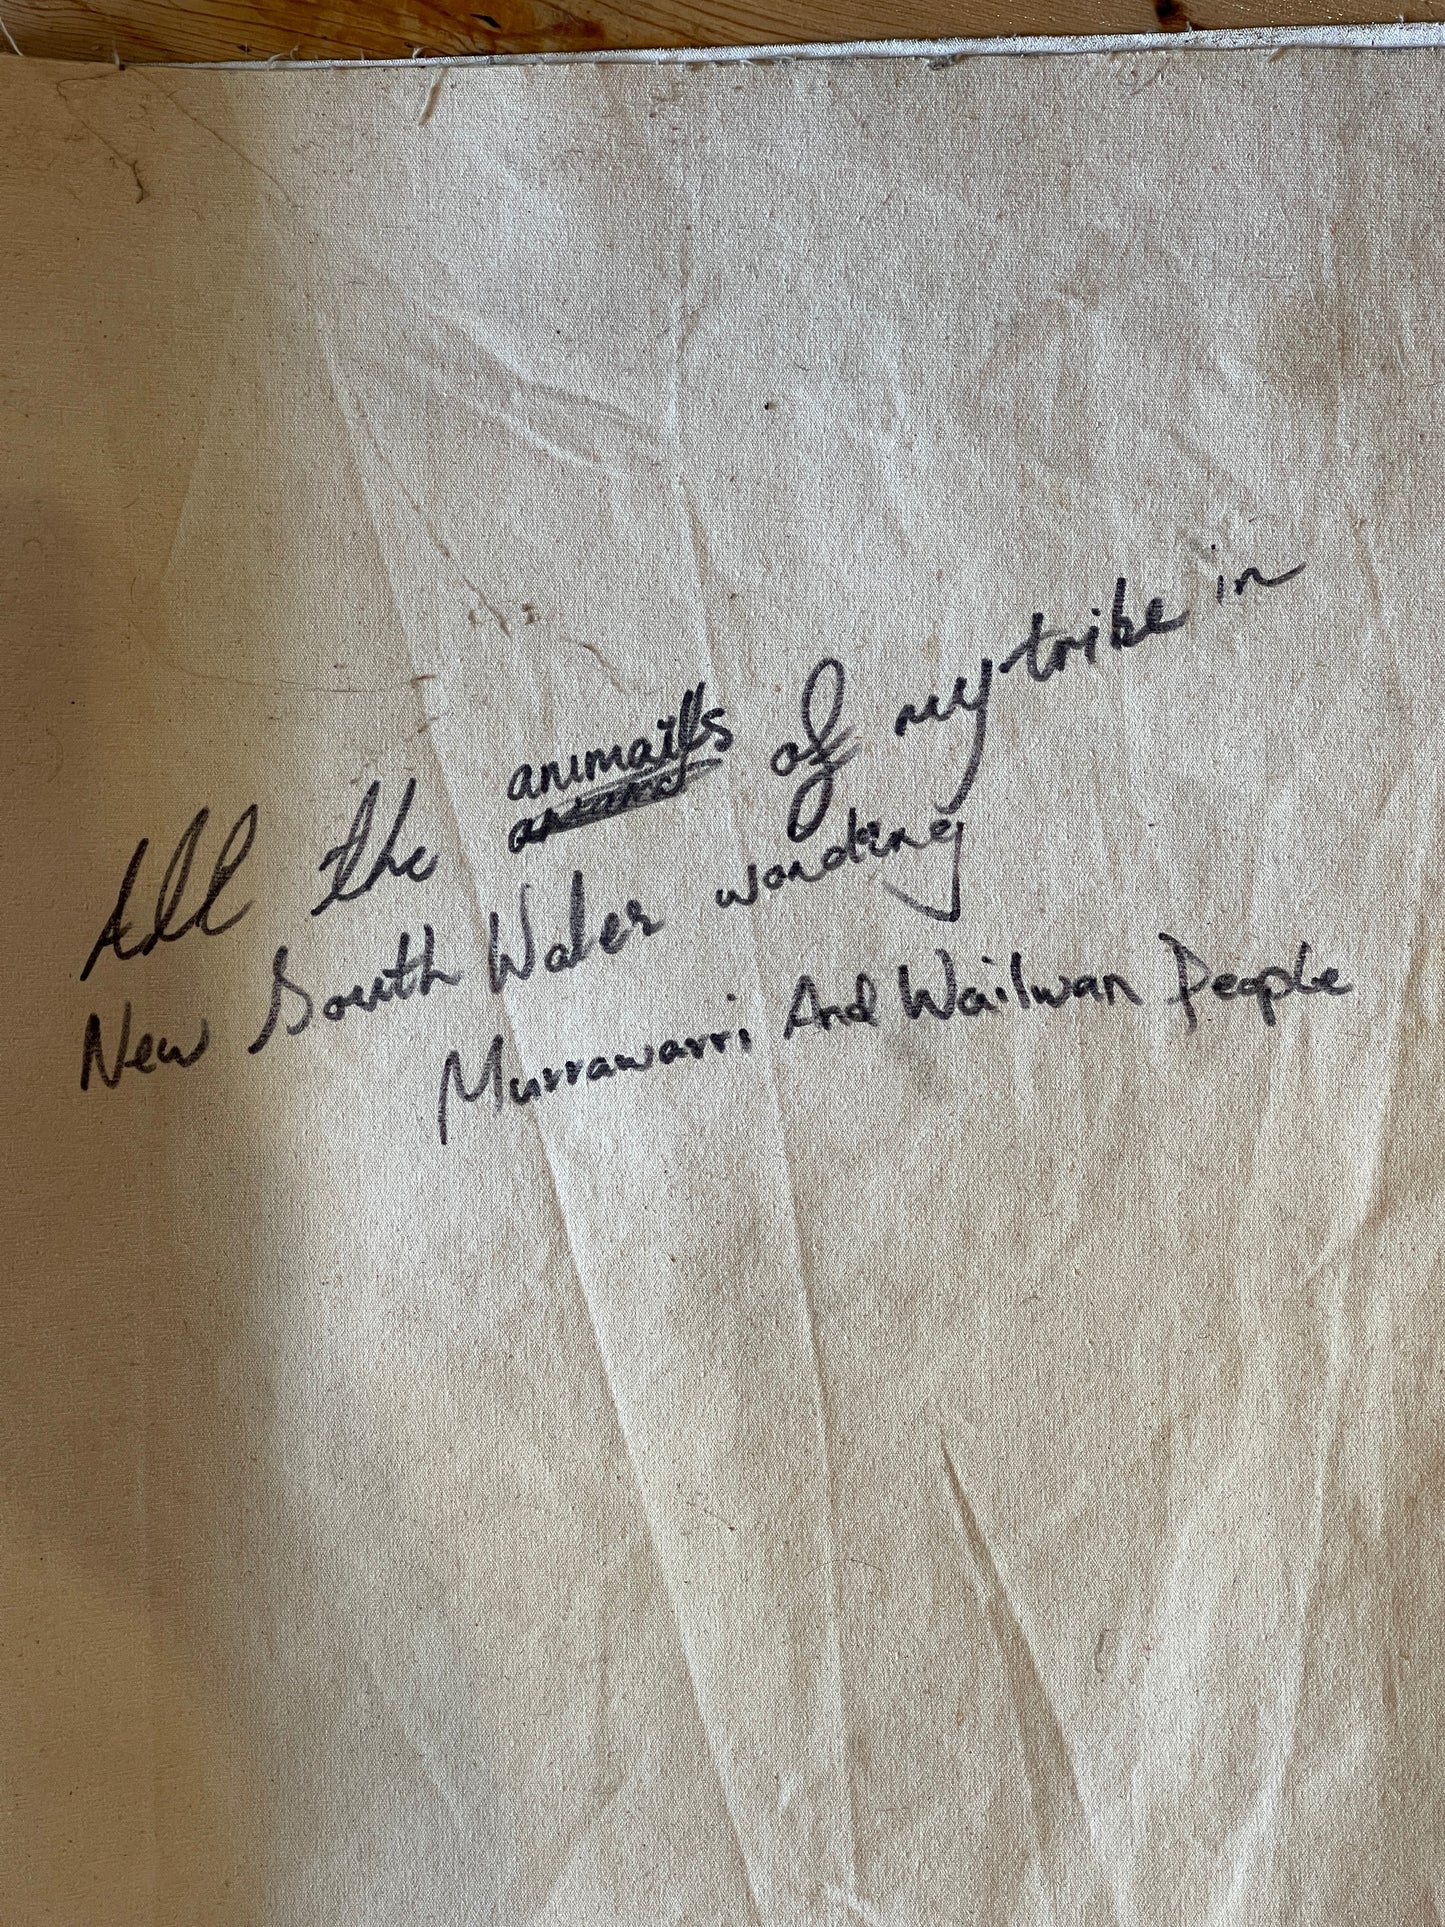 All the animails of my tribe in
New South Wales wording
Murrawarri And Wailwan People